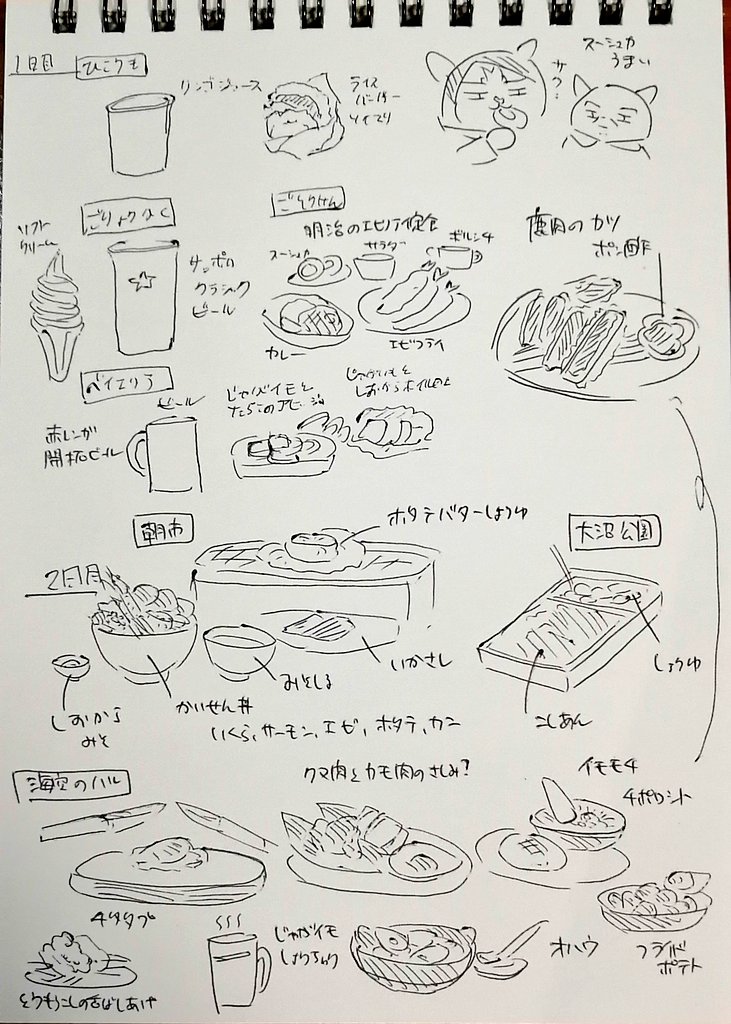 1日目
ひこうき
リンゴジュース
ライス
バーガー
スーシュカ
うまい
サク…
ごりょうかく
ソフト
クリーム
サッポロ
クラシック
ビール
ごとうけん
明治のエビフライ定食
スーシュカ
サラダ
ボルシチ
カレー
エビフライ
鹿肉のカツ
ポン酢
ベイエリア
ビール
赤レンガ
開拓ビール
じゃがイモと
たらこのアヒージョ
じゃがいもと
しおからホイル
朝市
2日目
ホタテバターしょうゆ
いかさし
みそしる
かいせん丼
いくら、サーモン、エビ、ホタテ、カニ
しおから
みそ
大沼公園
しょうゆ
こしあん
海空のハル
クマ肉とカモ肉のさしみ?
イモモチ
チポロシト
チタタプ
とうもろこしの香ばしあげ
じゃがイモ
しょうちゅう
オハウ
フライド
ポテト